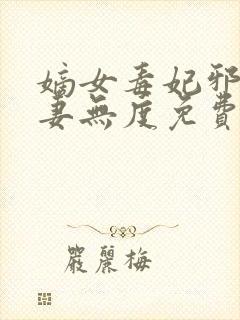 嫡女毒妃邪
妻無度免費
嚴麗梅